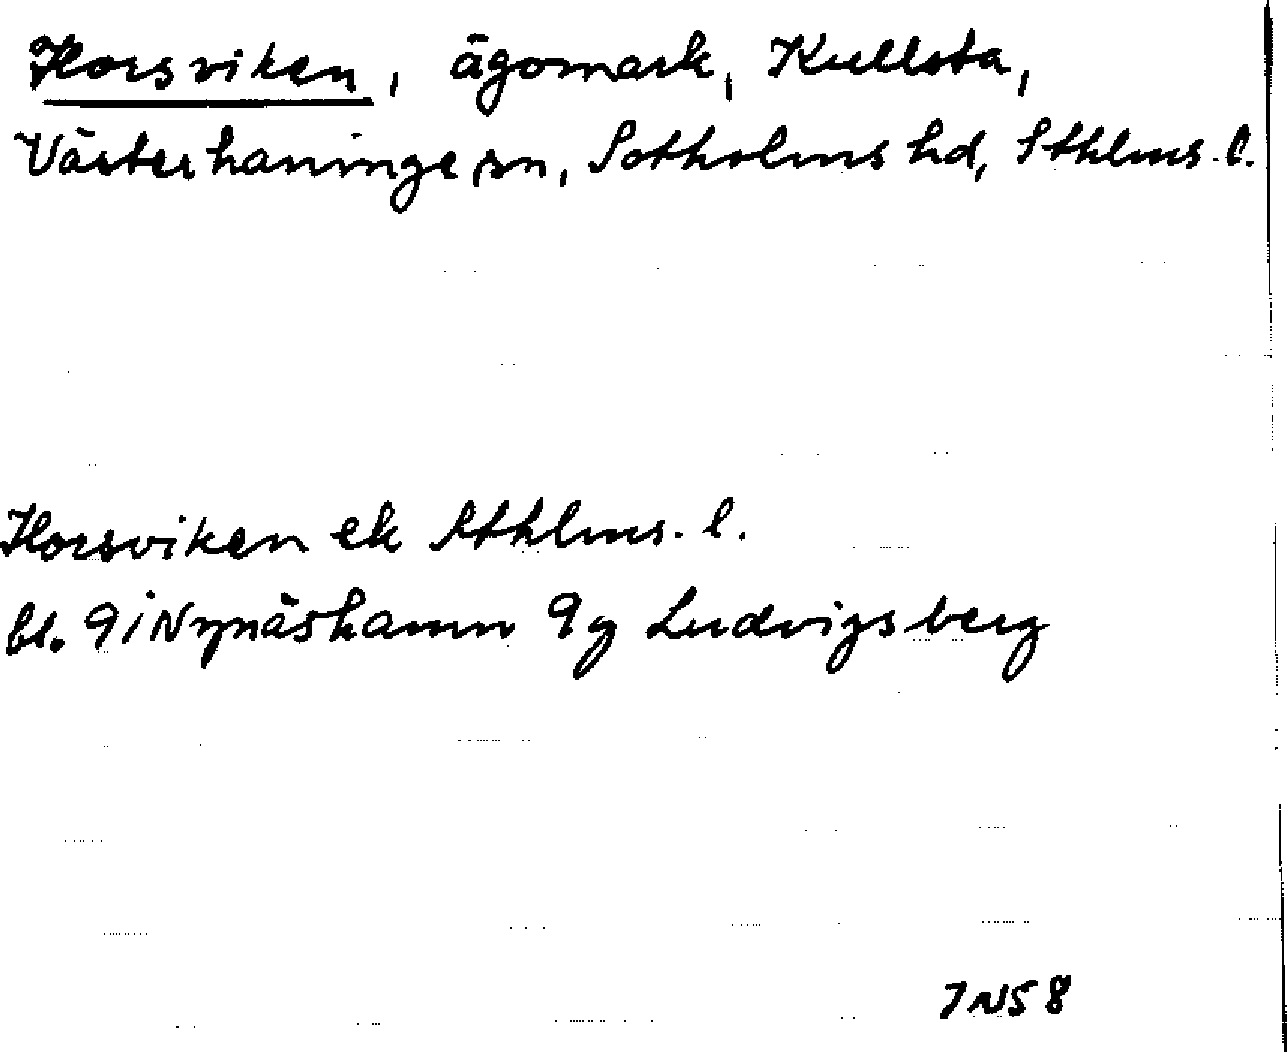 Horsviken, ägomark, Kullsta,
Västerhaninge sn, Sotholms hd, Sthlms. l.
Horsviken ek Sthlms. l.
bl. 9i Nynäshamn 9g Ludvigsberg
7N58